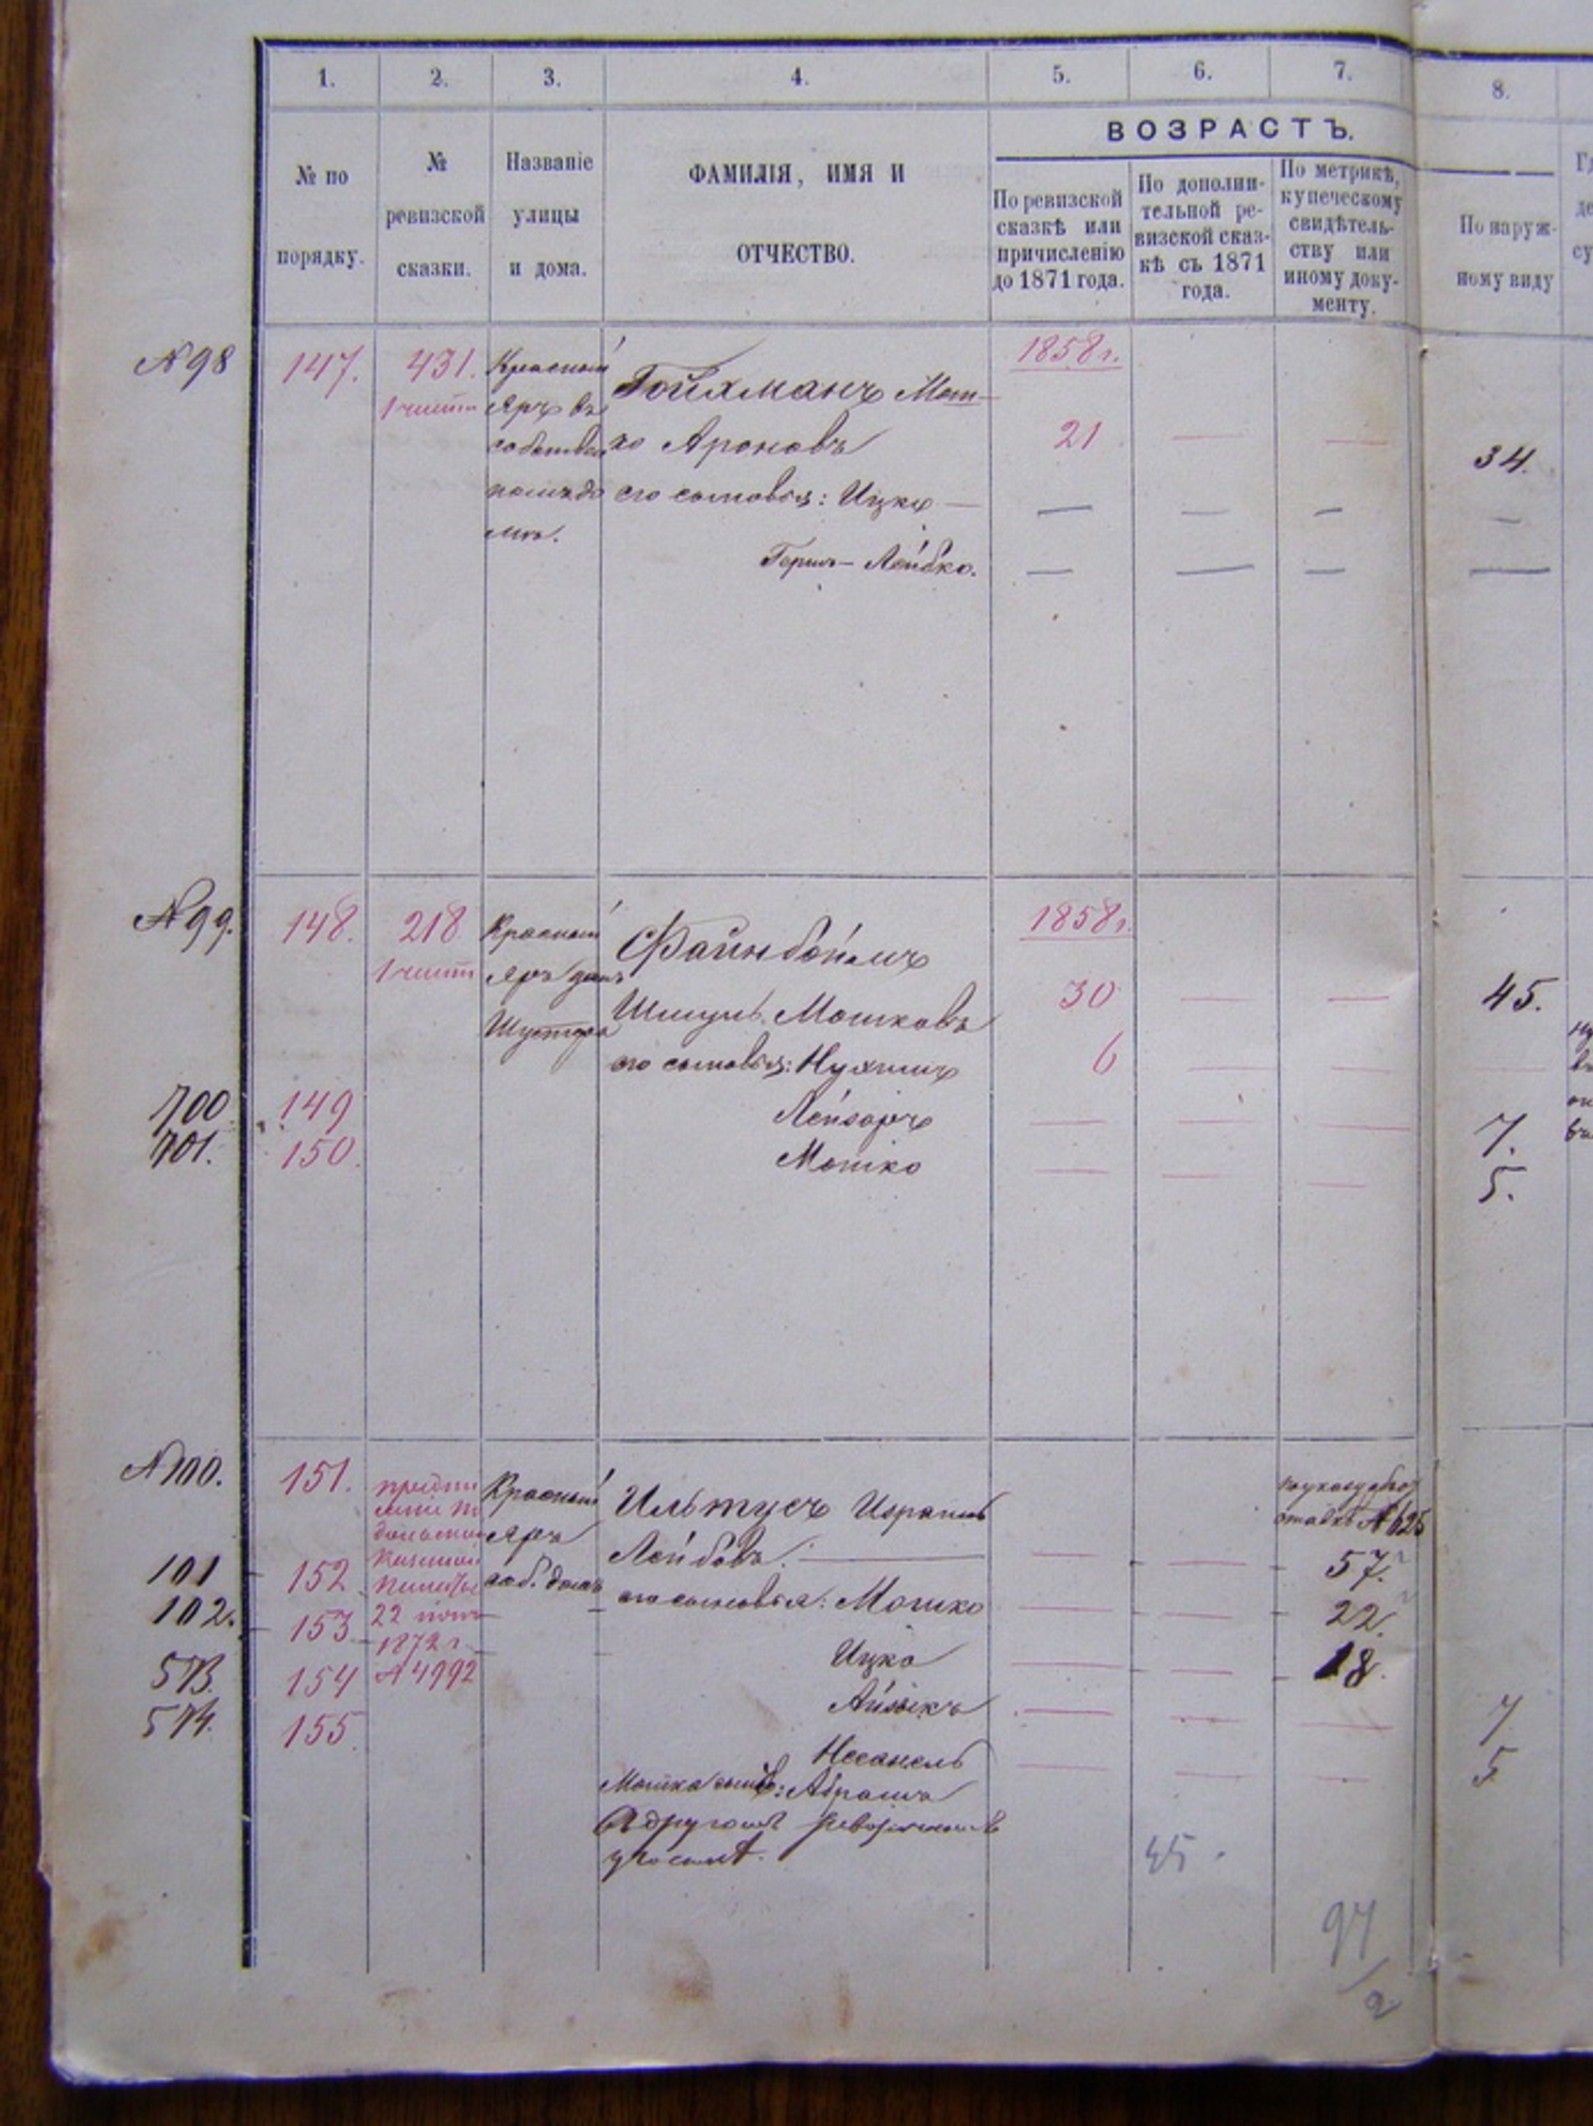 1. 2. 3. 4. 5. 6. 7. 8.
ВОЗРАСТЪ.
№ по порядку.
№ ревизской сказки.
Названіе улицы и дома.
ФАМИЛІЯ, ИМЯ И ОТЧЕСТВО.
По ревизской сказкѣ или причисленію до 1871 года.
По дополнительной ревизской сказкѣ съ 1871 года.
По метрикѣ, купеческому свидѣтельству или иному документу.
По наружному виду
№ 98 147. 431. Красный Гойхманъ Мош- 1858 г.
Яръ въ ко Ароновъ 21 — — 34.
его сыновья: Ицко — — — — —
Герш-Лейбко. — — — —
№ 99. 148. 218 Красный Файнбоймъ 1858 г.
Яръ домъ
Шмуль Мошковъ 30 — — 45.
его сыновья: Нухимъ 6 — —
700 149 Лейзоръ — — — 7.
701. 150 Мошко — — — 5.
№ 100. 151. Красный Ильтусъ Израиль
Яръ Лейбовъ. — — — 57.
соб. домъ
№ 625
101 152 его сыновья: Мошко — — 22.
102. 153 22 1872 г. Ицко — — 18.
573. 154 № 4992 Айзикъ — — — 7
574. 155 Несанель — — — 5
Абрамъ
45.
97
/2